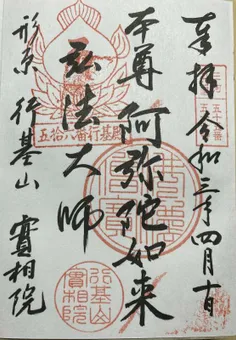 奉拝 令和三年四月十日
本尊 阿弥陀如来
弘法大師
五拾六番行基
形原 行基山 實相院
行基山實相院